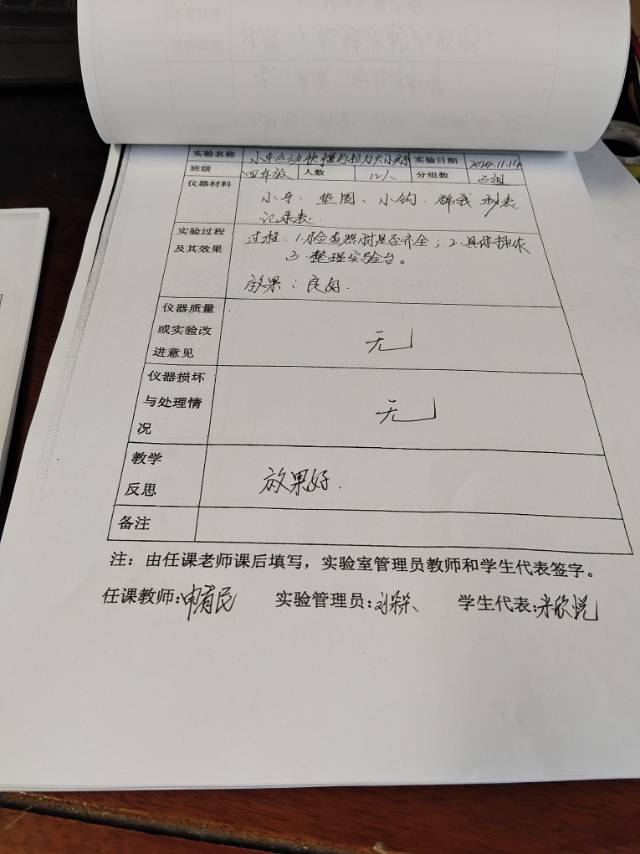 实验名称 小车运动快慢与拉力大小关系 实验日期 2024.11.14
班级 四年级 人数 12人 分组数
仪器材料 小车、垫圈、小钩、棉线 秒表
记录表
实验过程 过程：1.检查器材是否齐全；2.具体操作
及其效果 3.整理实验台。
效果：良好.
仪器质量
或实验改 无
进意见
仪器损坏
与处理情 无
况
教学 效果好.
反思
备注
注：由任课老师课后填写，实验室管理员教师和学生代表签字。
任课教师:申育民 实验管理员: 学生代表:米欣悦